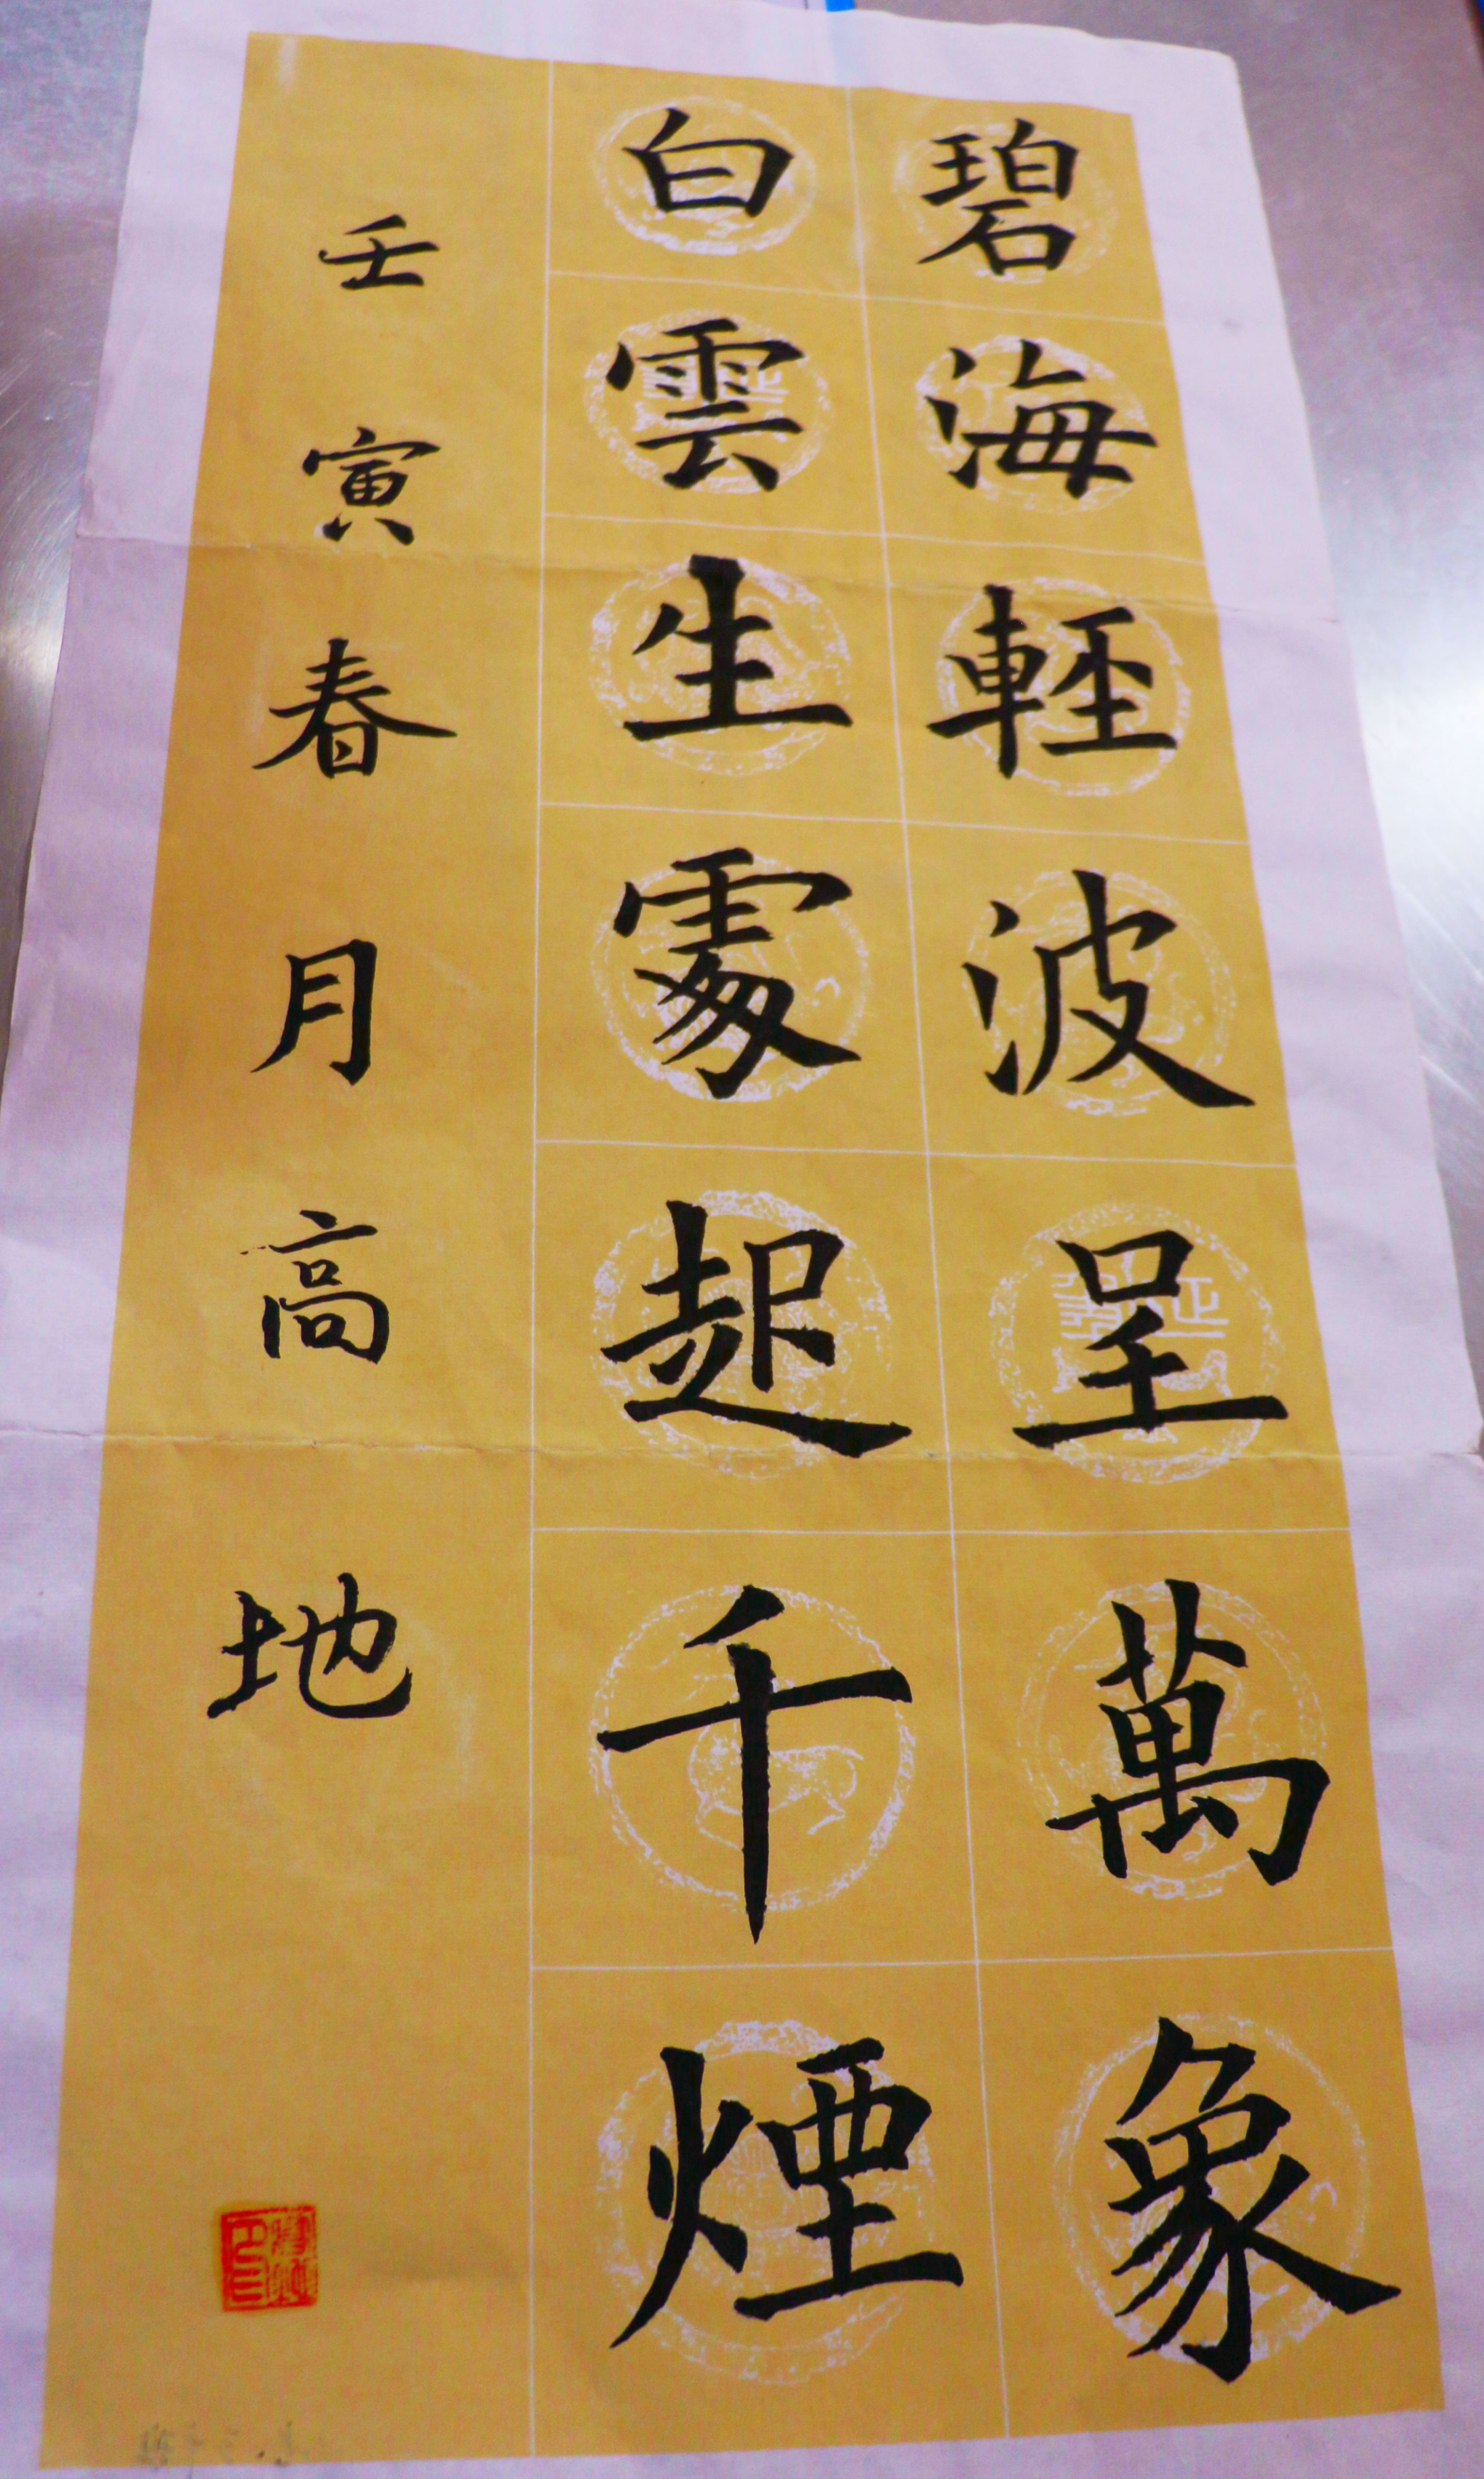 碧海輕波呈萬象
白雲生處起千煙
壬寅春月高地